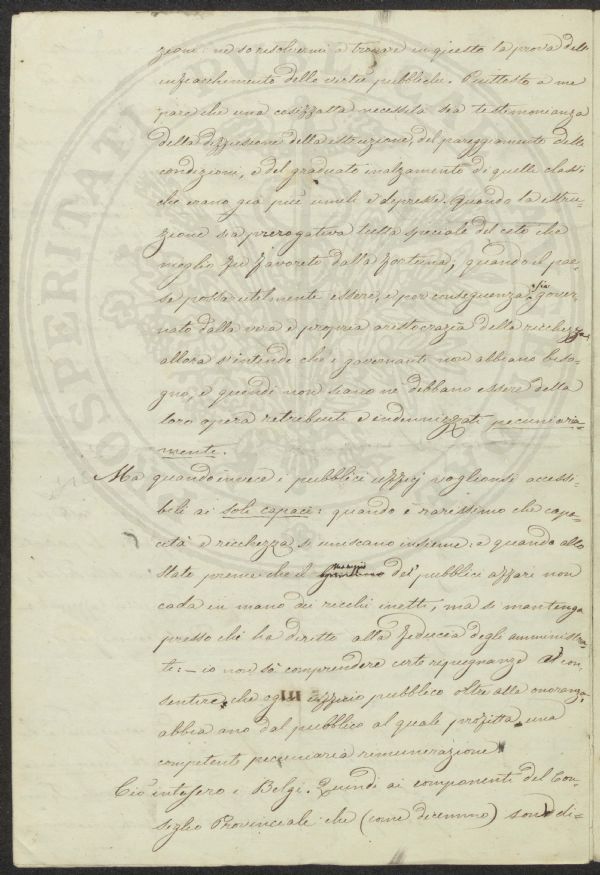 zione: nè so risolvermi a trovare in questo la prova dell'
infiacchimento delle virtù pubbliche. Piuttosto a me
pare che una cosiffatta necessità sia testimonianza
della diffusione della istruzione, del pareggiamento delle
condizioni, e del graduato inalzamento di quelle classi
che erano già più umili e depresse. Quando la istru-
zione sia prerogativa tutta speciale del ceto che
meglio fu favorito dalla fortuna; quando il pae-
se possa utilmente essere, e per conseguenza sia gover-
nato dalla vera e propria aristocrazia della ricchezza
allora s'intende che i governanti non abbiano biso-
gno, e quindi non siano nè debbano essere della
loro opera retribuiti e indennizzati pecuniaria-
mente.
Ma quando invece i pubblici uffizj voglionsi accessi-
bili ai soli capaci: quando è rarissimo che capa-
cità e ricchezza si uniscano insieme: e quando allo
stato preme che il maneggio dei pubblici affari non
cada in mano dei ricchi inetti, ma si mantenga
presso chi ha diritto alla fiducia degli amministra-
ti: — io non sò comprendere certe repugnanze a con-
sentire, che ogni uffizio pubblico oltre alla onoranza,
abbia ano dal pubblico al quale profitta una
competente pecuniaria remunerazione.
Ciò intesero i Belgi. Quindi ai componenti del Con-
siglio Provinciale che (come diremmo) sono di-